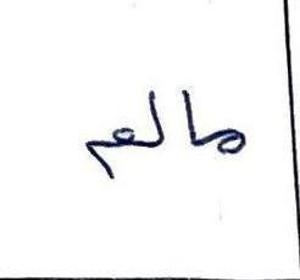 مالم